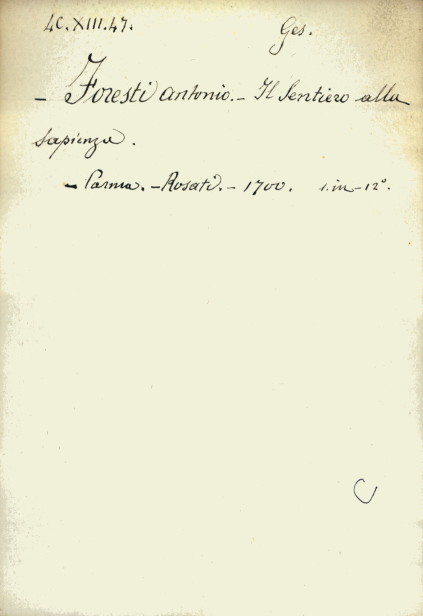 4C.XIII.47. Ges.
- Foresti Antonio. - Il Sentiero alla
sapienza.
- Parma. - Rosati. - 1700. 1. in - 12°.
C